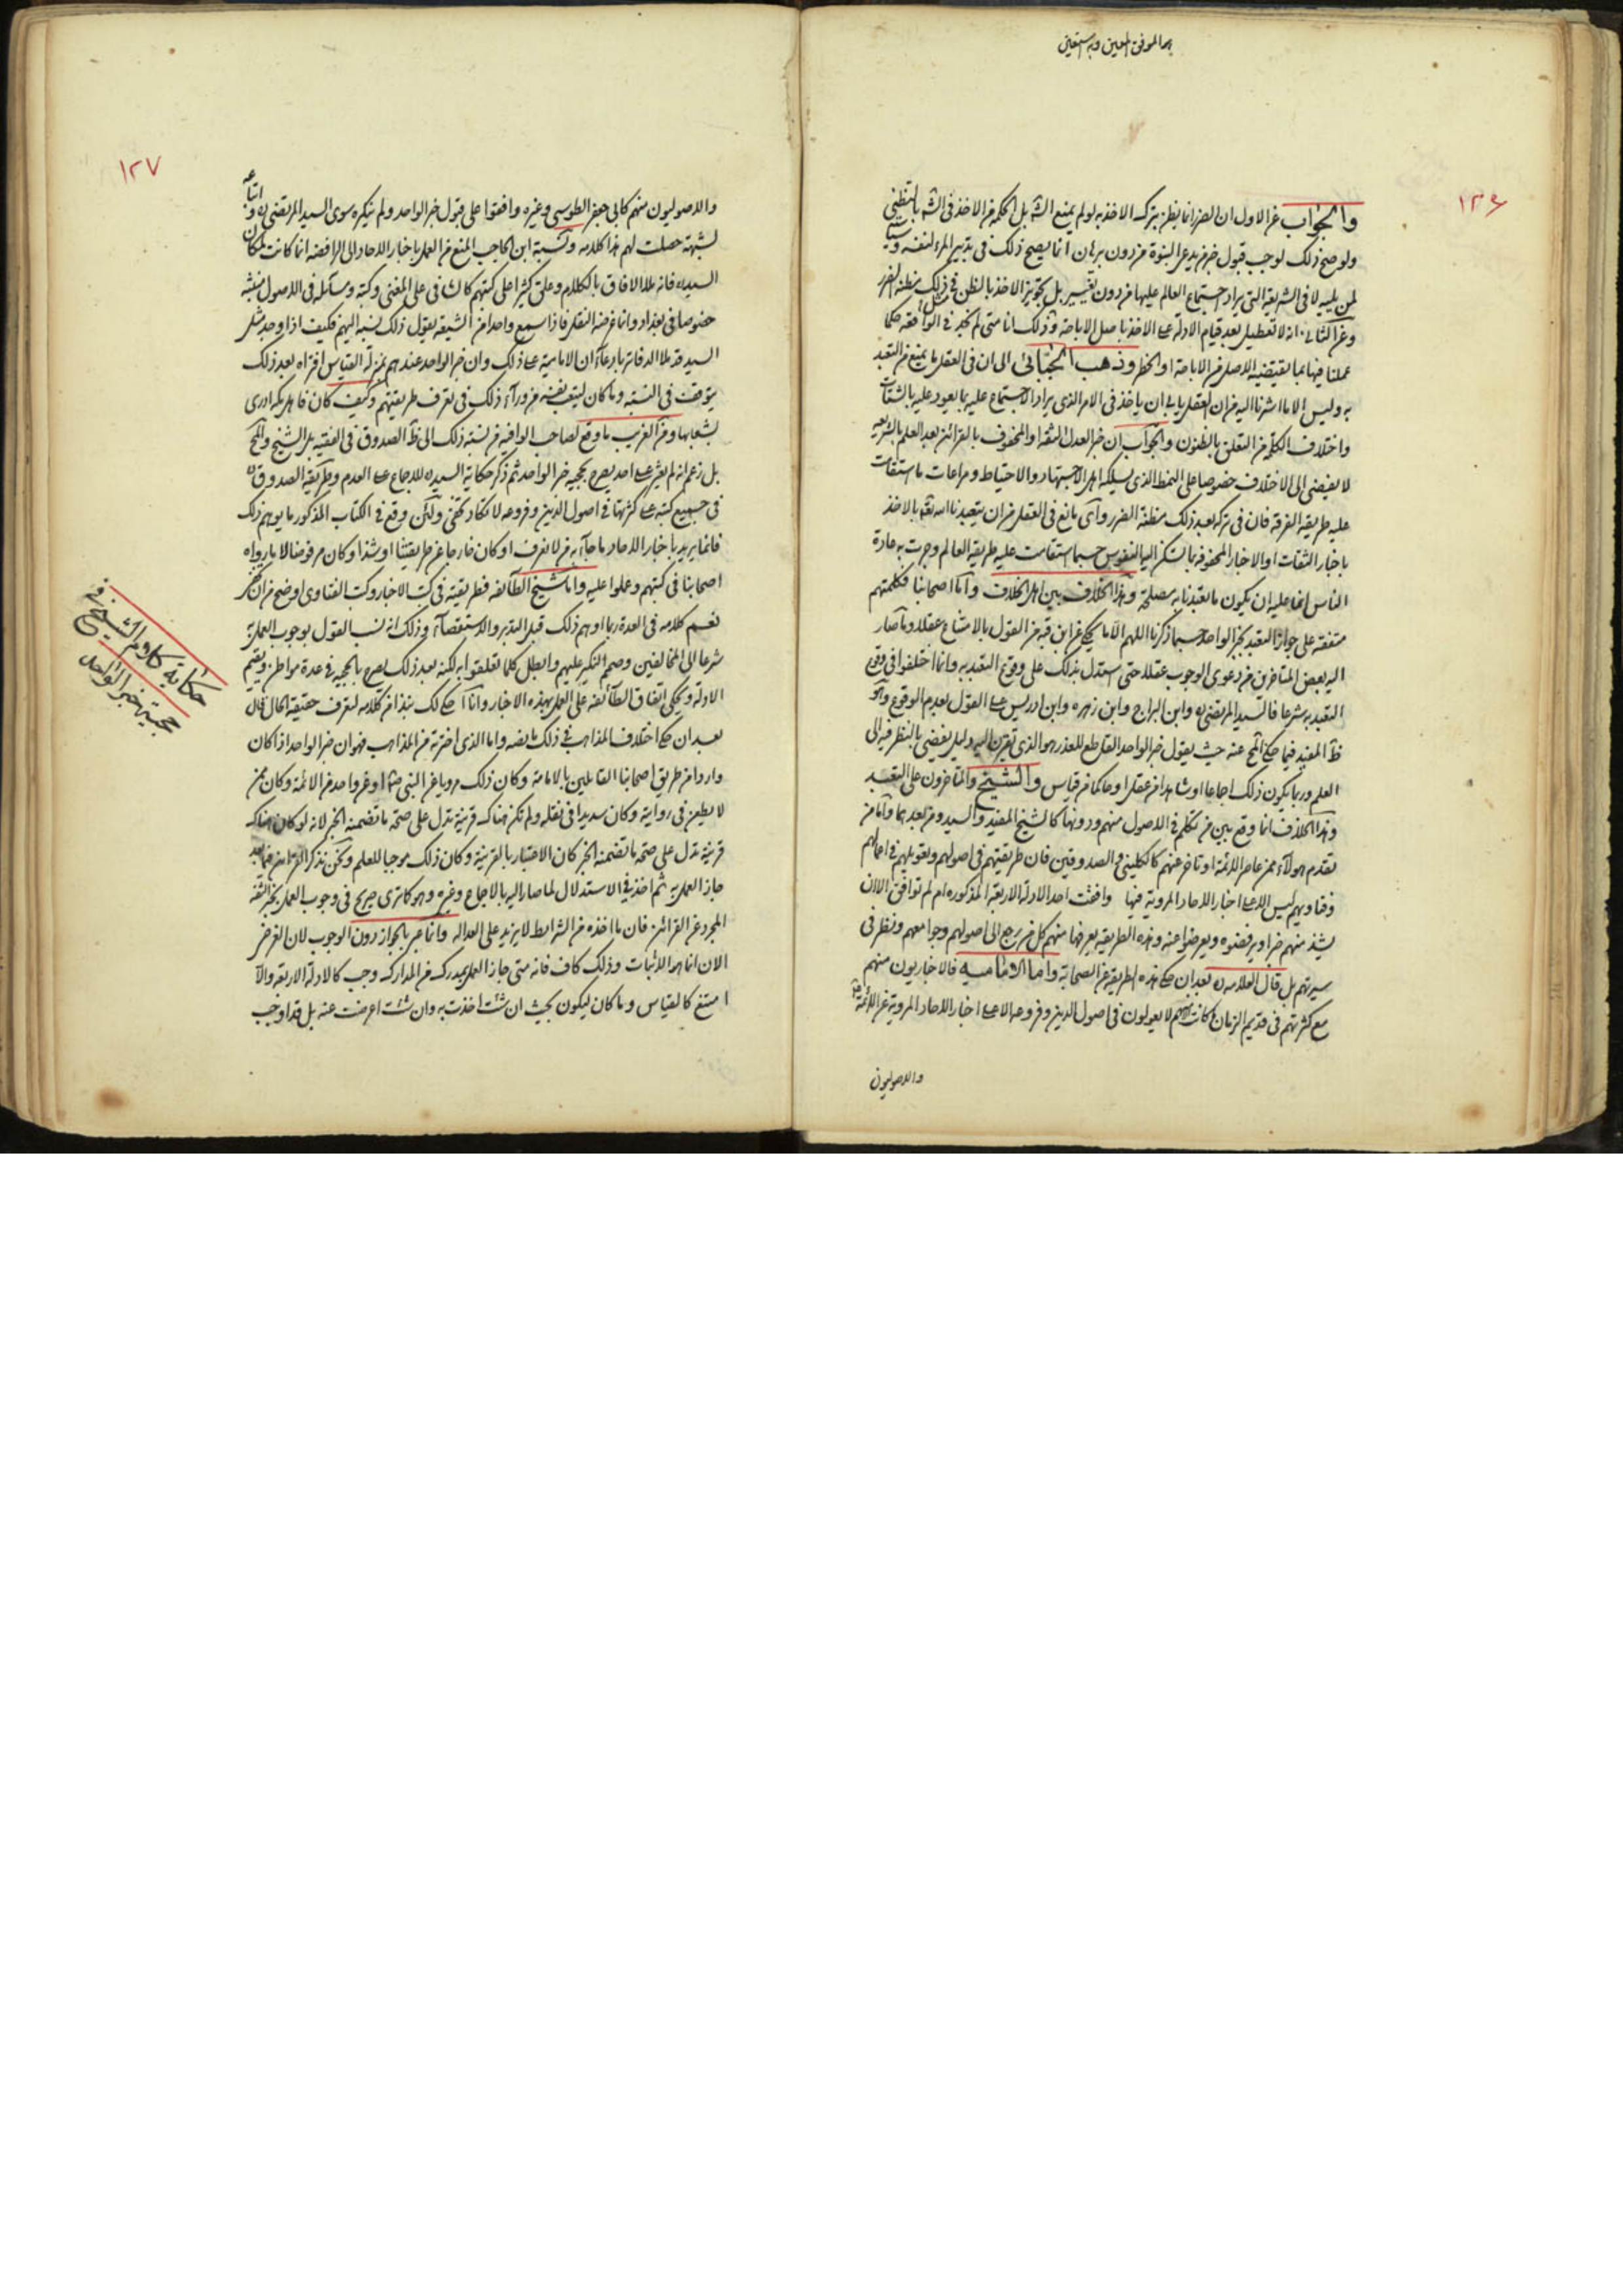 هو الموفق المعين وبه نستعين
١٢٦
والجواب عن الاول ان الضرر انما يظن بتركه الاخذ به لو لم يمنع الشرع بل الحكم من الاخذ في الشرع بالظني
ولو صح ذلك لوجب قبول خبر من يدعي النبوة من دون برهان انما يصح ذلك في تدبير المرء لنفسه
لمن يليه لا في الشريعة التي يراد اجتماع العالم عليها من دون تغيير بل تجويز الاخذ بالظن في ذلك مظنة الضرر
وعن الثاني انه لا تعطيل بعد قيام الادلة على الاخذ باصل الاباحة وذلك انا متى لم نجد في الواقعة حكما
عملنا فيها بما يقتضيه الاصل من الاباحة او الحظر وذهب الجبائي الى ان في العقل ما يمنع من التعبد
به وليس الا ما اشرنا اليه من ان العقل يابى ان ياخذ في الامر الذي يراد الاجتماع عليه بما يعود عليه بالشتات
واختلاف الكلمة من التعلق بالظنون والجواب ان خبر العدل الثقة او المحفوف بالقرائن بعد العلم بالشريعة
لا يفضي الى الاختلاف خصوصا على النمط الذي يسلكه اهل الاجتهاد والاحتياط ومراعات ما استقامت
عليه طريقة الفرقة فان في تركه بعد ذلك مظنة الضرر واى مانع في العقل من ان يتعبدنا الله تعالى بالاخذ
باخبار الثقات او الاخبار المحفوفة بما تسكن اليه النفوس حسبما استقامت عليه طريقة العالم وجرت به عادة
الناس انما عليه ان يكون ما تعبدنا به مصلحة وهذا الخلاف بين اهل الخلاف واما اصحابنا فكلمتهم
متفقة على جواز التعبد بخبر الواحد حسبما ذكرنا اللهم الا ما يحكى عن ابن قبة من القول بالامتناع عقلا وما صار
اليه بعض المتاخرين من دعوى الوجوب عقلا حتى استدل بذلك على وقوع التعبد به وانما اختلفوا في وقوع
التعبد به شرعا فالسيد المرتضى وابن البراج وابن زهره وابن ادريس على القول بعدم الوقوع وهو
ظاهر المفيد فيما حكى المحقق عنه حيث يقول خبر الواحد القاطع للعذر هو الذي تقترن اليه دليل يفضي بالنظر فيه الى
العلم وربما يكون ذلك اجماعا او شاهدا من عقل او حاكما من قياس والشيخ والمتاخرون على التعبد
وهذا الخلاف انما وقع بين من تكلم في الاصول منهم ودونها كالشيخ المفيد والسيد ومن بعدهما واما من
تقدم هولاء ممن عاصر الائمة او تاخر عنهم كالكليني والصدوقين فان طريقتهم في اصولهم وتعويلهم في اعمالهم
وفتاويهم ليس الا على اخبار الاحاد المروية فيها وافقت احد الادلة الاربعة المذكوره ام لم توافق الا ان
يشذ منهم خبر او يرفضوه ويعرضوا عنه وهذه الطريقة يعرفها منهم كل من رجع الى اصولهم وجوامعهم ونظر في
سيرتهم بل قال العلامه بعد ان حكى هذه الطريقة عن الصحابة واما الاماميه فالاخباريون منهم
مع كثرتهم في قديم الزمان كانت منهم لا يعولون في اصول الدين وفروعه الا على اخبار الاحاد المروية عن الائمة
والاصوليون
١٢٧
والاصوليون منهم كابي جعفر الطوسي وغيره وافقوا على قبول خبر الواحد ولم ينكره سوى السيد المرتضى واتباعه
لشبهة حصلت لهم هذا كلامه ونسبة ابن الحاجب المنع من العمل باخبار الاحاد الى الرافضه انما كانت لمكان
السيد فانه ملا الافاق بالكلام وعلق كثيرا على كتبهم كالشافي على المغني وكتبه ومسائله في الاصول منبثة
خصوصا في بغداد وانما غرضه النقل فاذا سمع واحدا من الشيعة يقول ذلك نسبه اليهم فكيف اذا وجد مثل
السيد قد ملا الدفاتر بادعاء ان الامامية على ذلك وان خبر الواحد عندهم بمنزلة القياس افتراه بعد ذلك
يتوقف في النسبة وما كان ليتعب نفسه من وراء ذلك في تعرف طريقتهم وكيف كان فاهل مكة ادرى
بشعابها ومن الغريب ما وقع لصاحب الوافيه من نسبة ذلك الى ظاهر الصدوق في الفقيه بل الشيخ والمحقق
بل زعم انه لم يعثر على احد يصرح بحجية خبر الواحد ثم ذكر حكاية السيد للاجماع على العدم وطريقة الصدوق
في جميع كتبه على كثرتها في اصول الدين وفروعه لا تكاد تخفى ولئن وقع في الكتاب المذكور ما يوهم ذلك
فانما يريد باخبار الاحاد ما جاء به من لا نعرف او كان خارجا عن طريقتنا او شذ او كان مرفوضا لا ما رواه
اصحابنا في كتبهم وعملوا عليه واما شيخ الطائفة فطريقته في كتب الاخبار وكتب الفتاوى اوضح من ان تنكر
نعم كلامه في العدة ربما اوهم ذلك قبل التدبر والاستقصاء وذلك انه نسب القول بوجوب العمل به
شرعا الى المخالفين وصمم النكير عليهم وابطل كلما تعلقوا به لكنه بعد ذلك يصرح بالحجية في عدة مواطن ويقيم
الادلة ويحكي اتفاق الطائفة على العمل بهذه الاخبار وانا احكي لك نبذا من كلامه لتعرف حقيقة الحال قال
بعد ان حكى اختلاف المذاهب في ذلك ما نصه واما الذي اخترته من المذاهب فهو ان خبر الواحد اذا كان
واردا من طريق اصحابنا القائلين بالامامة وكان ذلك مرويا عن النبي او عن واحد من الائمة وكان ممن
لا يطعن في روايته وكان سديدا في نقله ولم تكن هناك قرينة تدل على صحة ما تضمنه الخبر لانه لو كان هناك
قرينة تدل على صحة ما تضمنه الخبر كان الاعتبار بالقرينة وكان ذلك موجبا للعلم ونحن نذكر القرائن فيما بعد
جاز العمل به ثم اخذ في الاستدلال لما صار اليه بالاجماع وغيره وهو كما ترى صريح في وجوب العمل بخبر الثقة
المجرد عن القرائن فان ما اخذه من الشرايط لا يزيد على العدالة وانما عبر بالجواز دون الوجوب لان الغرض
الان انما هو الاثبات وذلك كاف فانه متى جاز العمل بمدرك من المدارك وجب كالادلة الاربعة والا
امتنع كالقياس وما كان ليكون بحيث ان شئت اخذت به وان شئت اعرضت عنه بل قد اوجب
حكاية كلام الشيخ في
حجية خبر الواحد